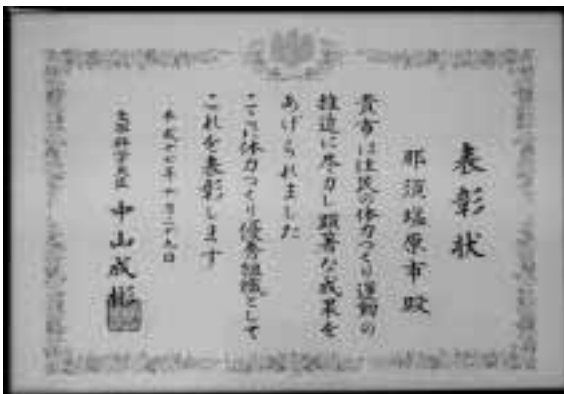 表彰状
那須塩原市殿
貴市は住民の体力つくり運動の
推進に尽力し顕著な成果を
あげられました
ここに体力つくり優秀組織として
これを表彰します
平成十七年十月二十九日
文部科学大臣 中山成彬